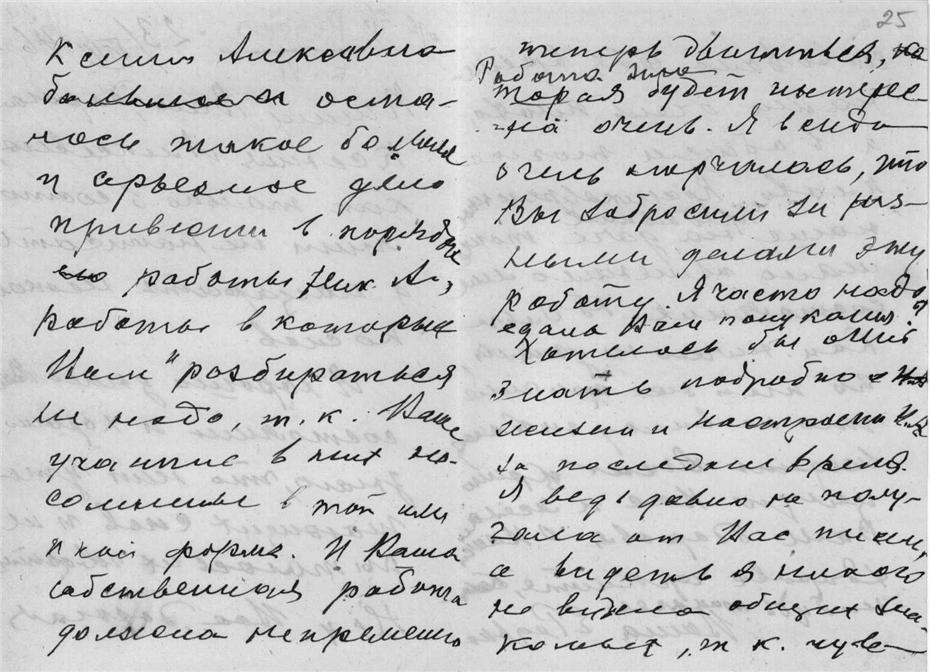 25
Ксения Алексеевна
оста-
лось такое большое
и серьезное дело
привести в порядок
работы Ник. А.,
работы в которых
Вам "разбираться
не надо, т. к. Ваше
участие в них не-
сомненны в той или
иной форме. И Ваша
собственная работа
должна непременно
теперь двигаться,
Работа
будет интерес-
на очень. Я всегда
очень огорчалась, что
Вы забросили за раз-
ными делами эту
работу. Я часто надо
едала Вам понуканием.
Хотелось бы очень
знать подробно о
жизни и настроении
за последнее время.
Я ведь давно не полу-
чала от Вас писем,
а видеть я никого
не видела общих зна-
комых, т. к. чув